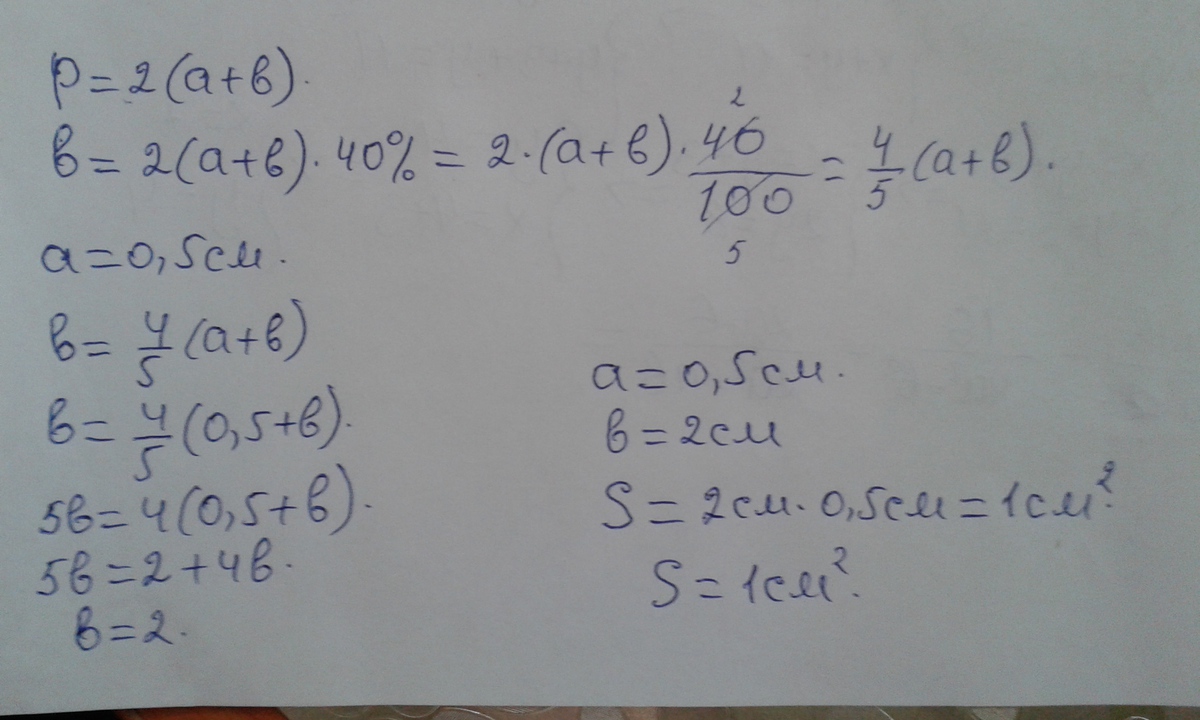 P = 2(a+в).
в = 2(a+в)·40% = 2·(a+в)·40/100 = 4/5(a+в).
2
5
a = 0,5см.
в = 4/5(a+в)
в = 4/5(0,5+в).
5в = 4(0,5+в).
5в = 2 + 4в.
в = 2.
a = 0,5см.
в = 2см
S = 2см·0,5см = 1см².
S = 1см².